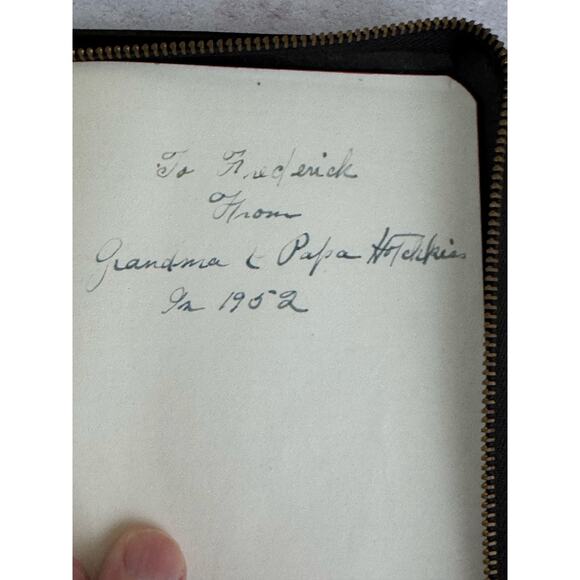 To Frederick
From
Grandma & Papa Hotchkiss
In 1952